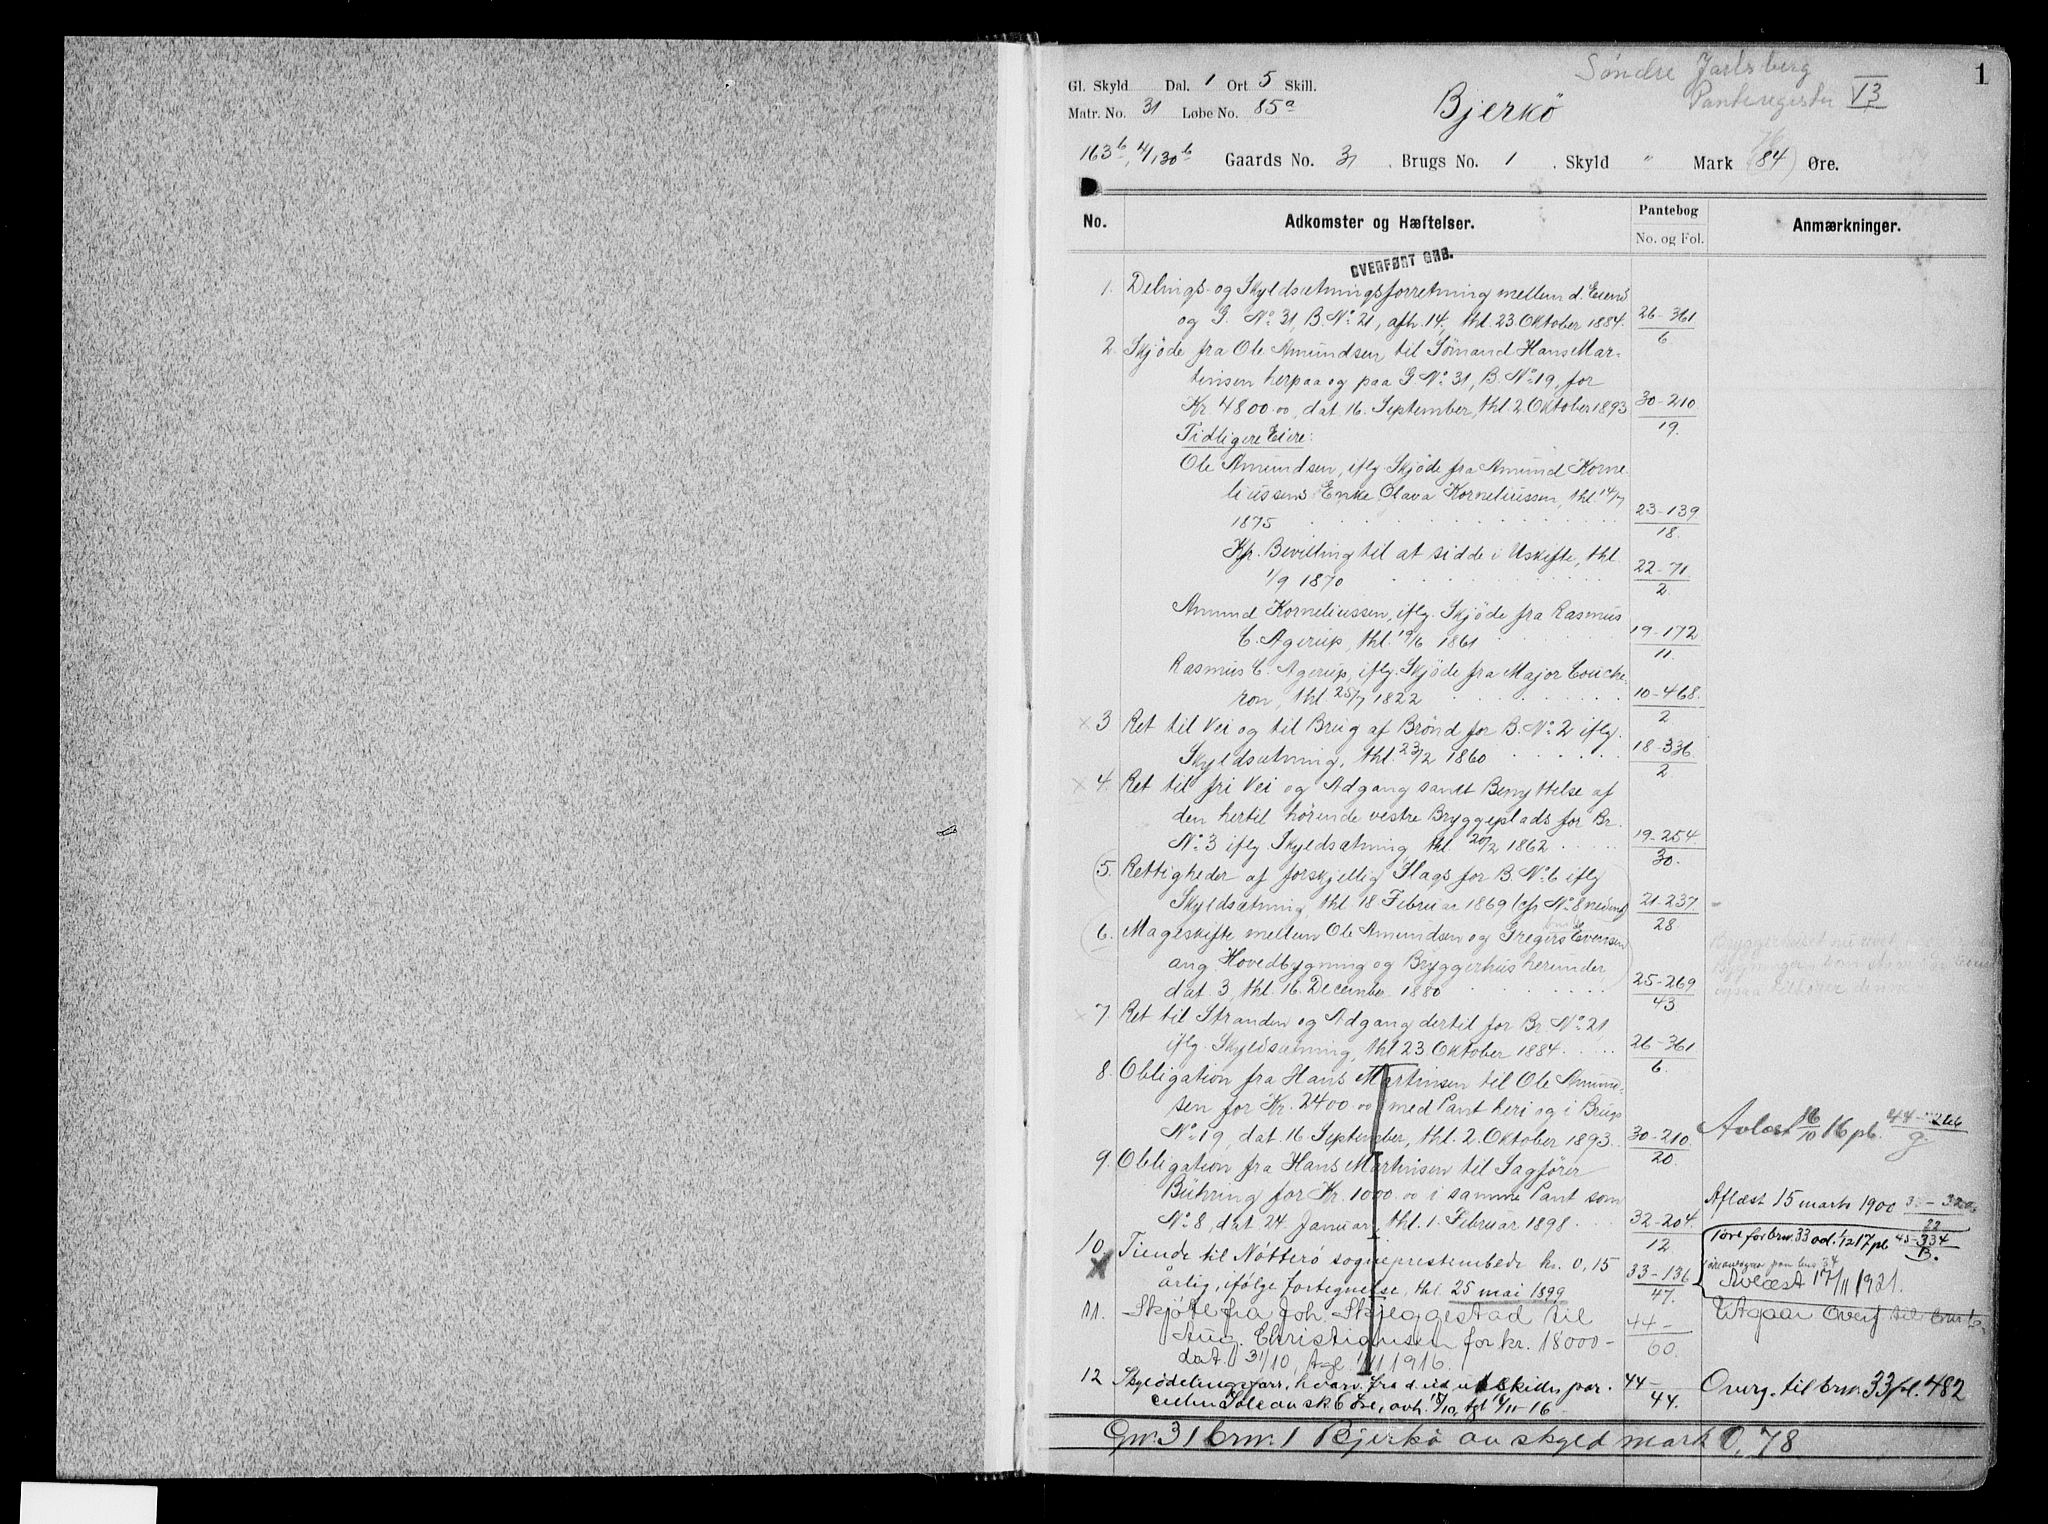 Søndre Jarlsberg
Panteregister VI3
1
Gl. Skyld Dal. 1 Ort 5 Skill.
Matr. No. 31 Løbe No. 85a
Bjerkö
163b, 130b Gaards No. 31. Brugs No. 1. Skyld " Mark (84) Øre.
No. Adkomster og Hæftelser. Pantebog No. og Fol. Anmærkninger.
OVERFØRT GRB.
1. Delnings- og Skyldsætningsforretning mellem d. Eiend
og G. No. 31, B. No. 21, afh. 14, thl. 23. Oktober 1884. 26-361/6
2. Skjøde fra Ole Amundsen til Sømand Hans Mar-
tinsen herpaa og paa G. No. 31, B. No. 19, for
Kr. 4800.00, dat. 16. September, thl. 2. Oktober 1893 30-210/19.
Tidligere Eiere:
Ole Amundsen, iflg. Skjøde fra Amund Korne-
liussens Enke Olava Korneliussen, thl. 14/7
1875 23-139/18.
Kgl. Bevilling til at sidde i Uskifte, thl.
1/9 1870 22-71/2
Amund Korneliussen, iflg. Skjøde fra Rasmus
C. Agerup, thl. 19/6 1861 19-172/11.
Rasmus C. Agerup, iflg. Skjøde fra Major Couche-
ron, thl. 25/7 1822 10-468/2
x 3 Ret til Vei og til Brug af Brønd for B. No. 2 iflg.
Skyldsætning, thl. 23/2 1860 18-336/2
x 4. Ret til fri Vei og Adgang samt Benyttelse af
den hertil hørende vestre Bryggeplads for Br.
No. 3 iflg. Skyldsætning, thl. 20/2 1862 19-254/30.
5. Rettigheder af forskjellig Slags for B. No. 6 iflg
Skyldsætning, thl. 18 Februar 1869 (cfr No. 8 21-237/28
6. Mageskifte mellem Ole Amundsen og Gregers Evensen
ang. Hovedbygning og Bryggerhus herunder
dat. 3, thl. 16. December 1880 25-269/43
Bryggerhuset
x 7. Ret til Stranden og Adgang dertil for Br. No. 21
iflg. Skyldsætning, thl. 23. Oktober 1884 26-361/6.
8. Obligation fra Hans Martinsen til Ole Amund-
sen for Kr. 2400.00 med Pant heri og i Brugs
No. 19, dat. 16 September, thl. 2. Oktober 1893. 30-210/20. Avlæst 16/10 16 pb. 44-
9. Obligation fra Hans Martinsen til Sagfører
Bühring for Kr. 1000.00 i samme Pant som
No. 8, dat. 24. Januar, thl. 1. Februar 1898 32-204/12 Aflæst 15 marts 1900
10. Tiende til Nøtterø sogneprestembede kr. 0,15
årlig, ifølge fortegnelse, thl. 25 mai 1899 33-136/47. Avlæst 17/11 1921.
11. Skjøte fra Joh. Skjeggestad til
Aug. Christiansen for kr. 18000-
dat. 31/10, tgl. 1/11 1916. 44-/60. Utgaar
12 Skylddelingsforr., hvorv. fra d. eid utskides par-
cellen av sk 6 øre, avh. 44-/44. Overg. til brnr. 33 fl. 482
Gnr. 31 brnr. 1 Bjerkö av skyld mark 0,78